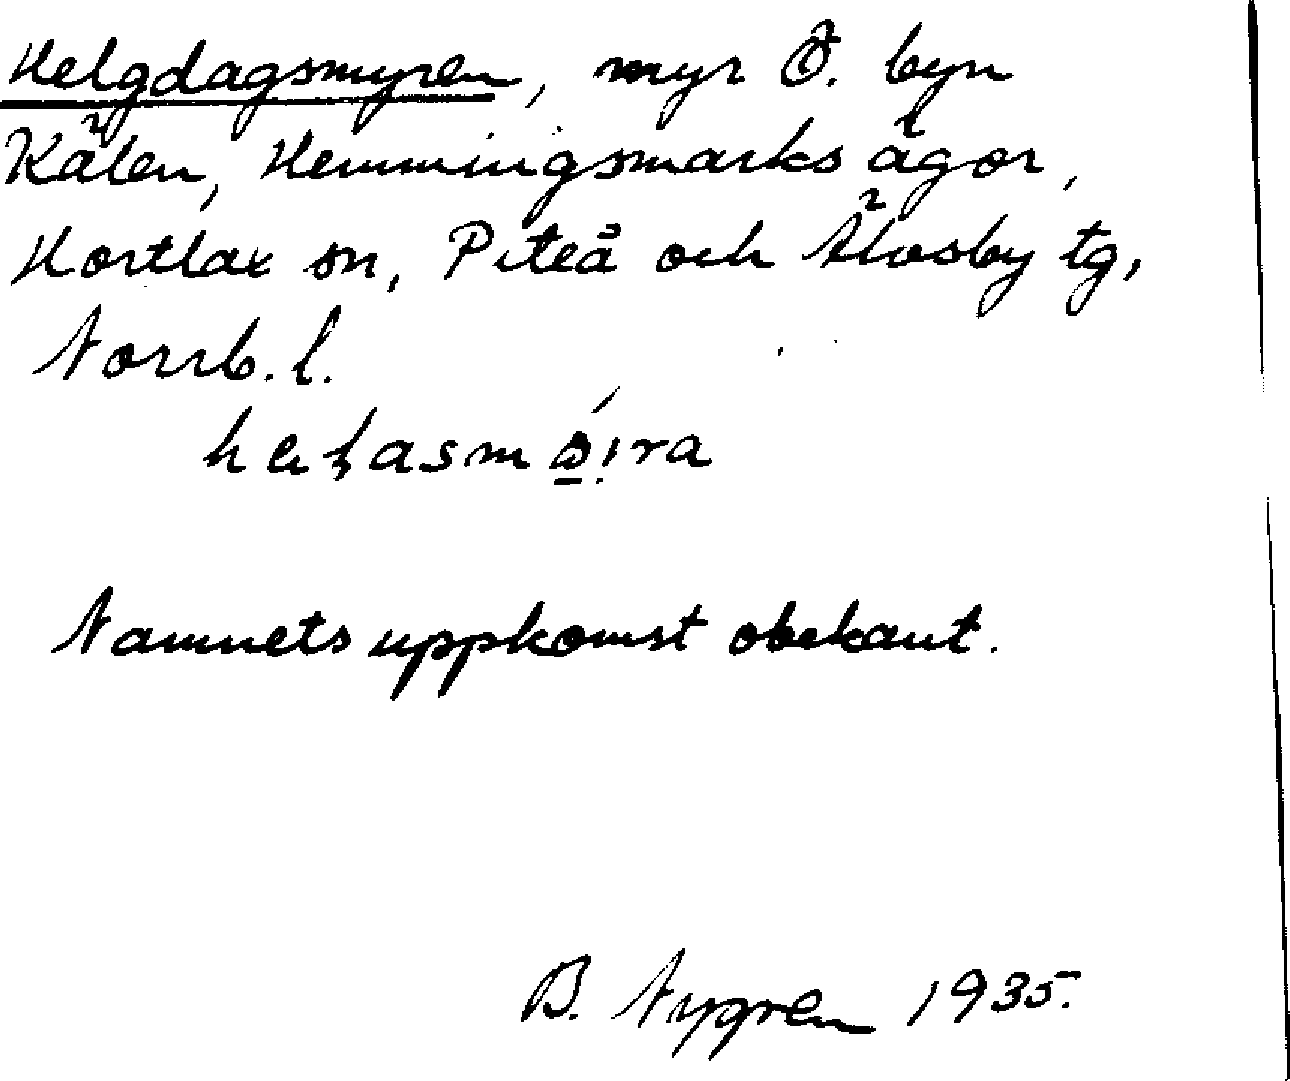 Helgdagsmyren, myr Ö. byn
Kälen, Hemmingsmarks ägor,
Hortlax sn, Piteå och Älvsby tg,
Norrb. l.
Namnets uppkomst obekant.
B. Nygren 1935.